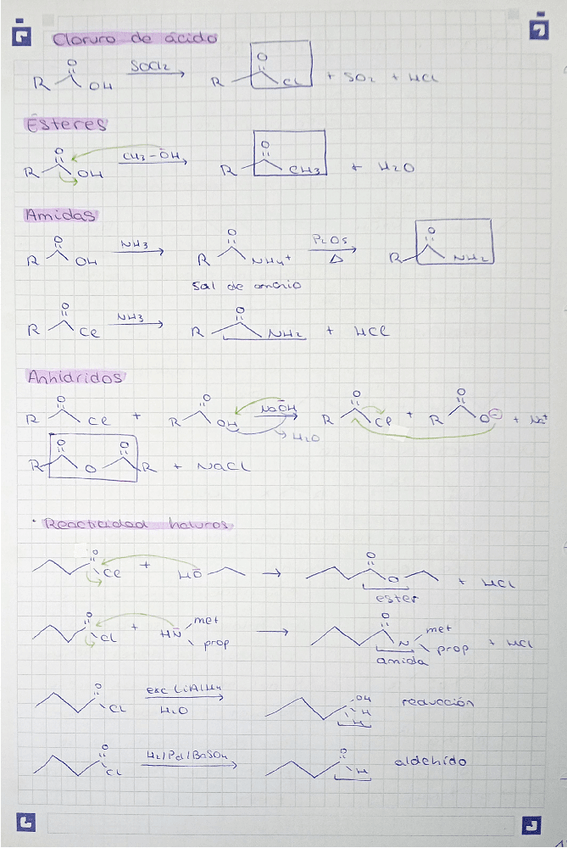 Cloruro de ácido
R O OH SOCl2 R O Cl + SO2 + HCl
Ésteres
R O OH CH3-OH R O CH3 + H2O
Amidas
R O OH NH3 R O NH4+ P2O5 Δ R O NH2
Sal de amonio
R O Cl NH3 R O NH2 + HCl
Anhídridos
R O Cl + R O OH NaOH H2O R O Cl + R O O⊖ + Na+
R O O O R + NaCl
· Reactividad haluros
O Cl + HO O O + HCl
ester
O Cl + HN met prop O N met prop + HCl
amida
O Cl exc LiAlH4 H2O OH H H reducción
O Cl H2/Pd/BaSO4 O H aldehido